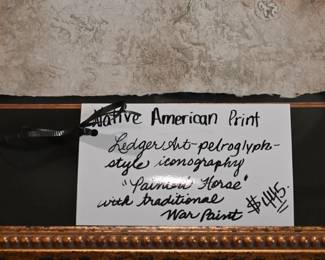 Native American Print
Ledger Art-petroglyph-
style iconography
"Painted Horse"
with traditional
War Paint
$445.